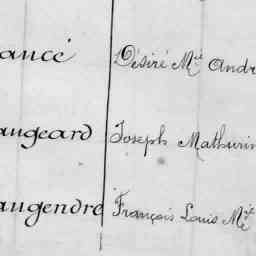 ancé Désiré Mie Andr
augeard Joseph Mathurin
augendre François Louis Mie